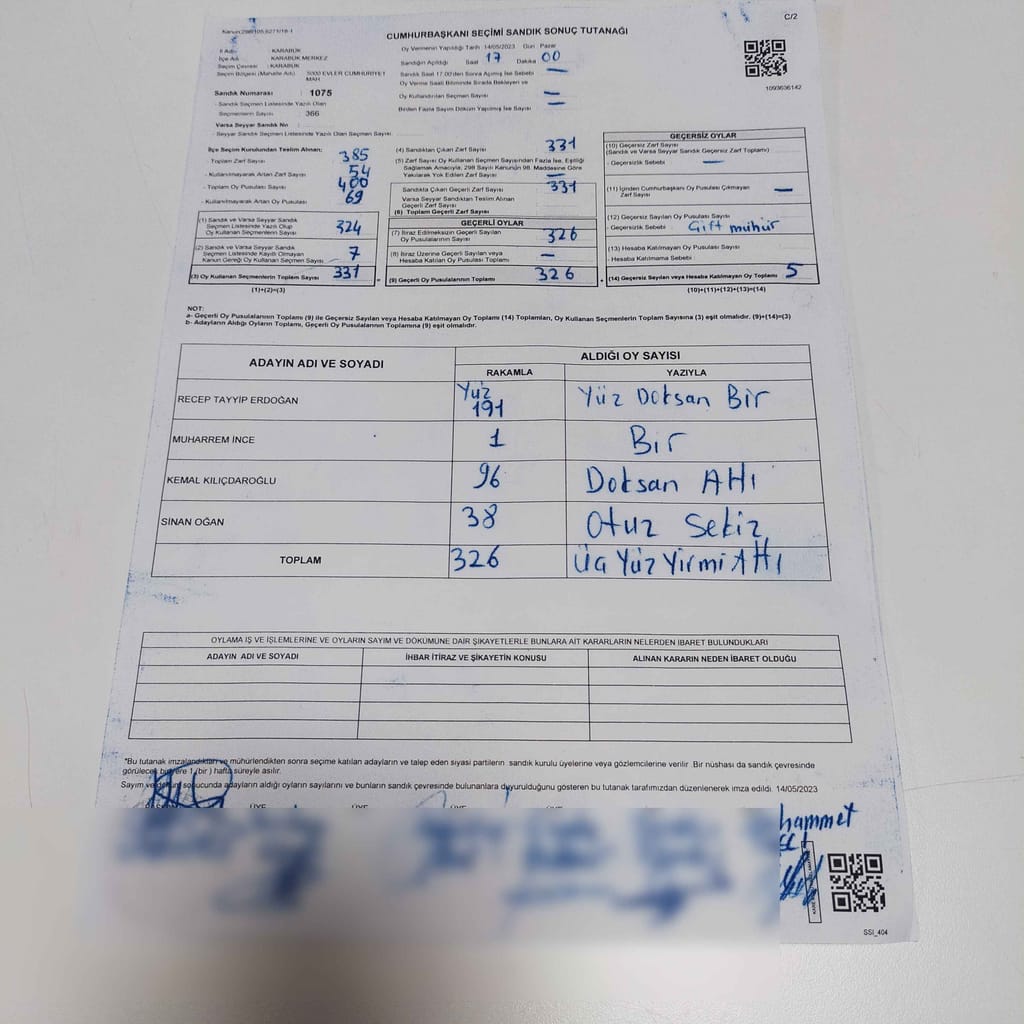 C/2
CUMHURBAŞKANI SEÇİMİ SANDIK SONUÇ TUTANAĞI
İl Adı : KARABÜK
İlçe Adı : KARABÜK MERKEZ
Seçim Çevresi : KARABÜK
Seçim Bölgesi (Mahalle Adı) 5000 EVLER CUMHURİYET MAH
Sandık Numarası : 1075
- Sandık Seçmen Listesinde Yazılı Olan
Seçmenlerin Sayısı : 366
Varsa Seyyar Sandık No
- Seyyar Sandık Seçmen Listesinde Yazılı Olan Seçmen Sayısı
Oy Vermenin Yapıldığı Tarih 14/05/2023 Gün Pazar
Sandığın Açıldığı Saat 17 Dakika 00
Sandık Saat 17.00'den Sonra Açılmış İse Sebebi —
Oy Verme Saati Bitiminde Sırada Bekleyen ve
Oy Kullandırılan Seçmen Sayısı —
Birden Fazla Sayım Döküm Yapılmış İse Sayısı —
1093636142
İlçe Seçim Kurulundan Teslim Alınan;
- Toplam Zarf Sayısı 385
- Kullanılmayarak Artan Zarf Sayısı 54
- Toplam Oy Pusulası Sayısı 400
- Kullanılmayarak Artan Oy Pusulası 69
(1) Sandık ve Varsa Seyyar Sandık
Seçmen Listesinde Yazılı Olup
Oy Kullanan Seçmenlerin Sayısı 324
(2) Sandık ve Varsa Seyyar Sandık
Seçmen Listesinde Kayıtlı Olmayan
Kanun Gereği Oy Kullanan Seçmen Sayısı 7
(3) Oy Kullanan Seçmenlerin Toplam Sayısı 331
(1)+(2)=(3)
(4) Sandıktan Çıkan Zarf Sayısı 331
(5) Zarf Sayısı Oy Kullanan Seçmen Sayısından Fazla İse, Eşitliği
Sağlamak Amacıyla, 298 Sayılı Kanunun 98. Maddesine Göre
Yakılarak Yok Edilen Zarf Sayısı —
Sandıkta Çıkan Geçerli Zarf Sayısı 331
Varsa Seyyar Sandıktan Teslim Alınan
Geçerli Zarf Sayısı
(6) Toplam Geçerli Zarf Sayısı
GEÇERLİ OYLAR
(7) İtiraz Edilmeksizin Geçerli Sayılan
Oy Pusulalarının Sayısı 326
(8) İtiraz Üzerine Geçerli Sayılan veya
Hesaba Katılan Oy Pusulası Toplamı —
(9) Geçerli Oy Pusulalarının Toplamı 326
GEÇERSİZ OYLAR
(10) Geçersiz Zarf Sayısı
(Sandık ve Varsa Seyyar Sandık Geçersiz Zarf Toplamı)
- Geçersizlik Sebebi —
(11) İçinden Cumhurbaşkanı Oy Pusulası Çıkmayan
Zarf Sayısı —
(12) Geçersiz Sayılan Oy Pusulası Sayısı
- Geçersizlik Sebebi Çift mühür
(13) Hesaba Katılmayan Oy Pusulası Sayısı
- Hesaba Katılmama Sebebi
(14) Geçersiz Sayılan veya Hesaba Katılmayan Oy Toplamı 5
(10)+(11)+(12)+(13)=(14)
NOT:
a- Geçerli Oy Pusulalarının Toplamı (9) ile Geçersiz Sayılan veya Hesaba Katılmayan Oy Toplamı (14) Toplamları, Oy Kullanan Seçmenlerin Toplam Sayısına (3) eşit olmalıdır. (9)+(14)=(3)
b- Adayların Aldığı Oyların Toplamı, Geçerli Oy Pusulalarının Toplamına (9) eşit olmalıdır.
ADAYIN ADI VE SOYADI
ALDIĞI OY SAYISI
RAKAMLA YAZIYLA
RECEP TAYYİP ERDOĞAN Yüz 191 Yüz Doksan Bir
MUHARREM İNCE 1 Bir
KEMAL KILIÇDAROĞLU 96 Doksan Altı
SİNAN OĞAN 38 Otuz Sekiz
TOPLAM 326 Üç Yüz Yirmi Altı
OYLAMA İŞ VE İŞLEMLERİNE VE OYLARIN SAYIM VE DÖKÜMÜNE DAİR ŞİKAYETLERLE BUNLARA AİT KARARLARIN NELERDEN İBARET BULUNDUKLARI
ADAYIN ADI VE SOYADI İHBAR İTİRAZ VE ŞİKAYETİN KONUSU ALINAN KARARIN NEDEN İBARET OLDUĞU
*Bu tutanak imzalandıktan ve mühürlendikten sonra seçime katılan adayların ve talep eden siyasi partilerin sandık kurulu üyelerine veya gözlemcilerine verilir. Bir nüshası da sandık çevresinde
görülecek bir yere 1 (bir) hafta süreyle asılır.
Sayım ve döküm sonucunda adayların aldığı oyların sayılarını ve bunların sandık çevresinde bulunanlara duyurulduğunu gösteren bu tutanak tarafımızdan düzenlenerek imza edildi. 14/05/2023
ÜYE ÜYE ÜYE
hammet
SSI_404